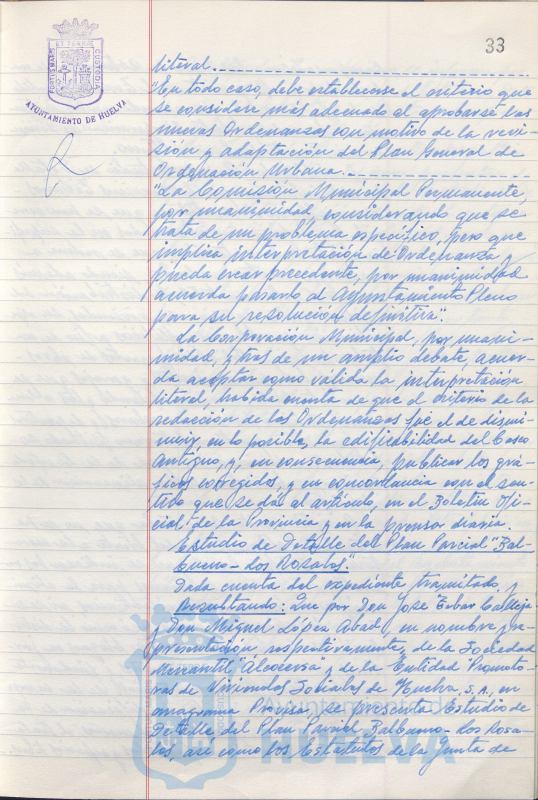 33
PORTUS MARIS ET TERRAE CUSTODIA
AYUNTAMIENTO DE HUELVA
literal.
"En todo caso, debe establecerse el criterio que
se considere más adecuado al aprobarse las
nuevas Ordenanzas con motivo de la revi-
sión y adaptación del Plan General de
Ordenación Urbana.
"La Comisión Municipal Permanente,
por unanimidad, considerando que se
trata de un problema específico, pero que
implica interpretación de Ordenanza y
pueda crear precedente, por unanimidad
acuerda pasarlo al Ayuntamiento Pleno
para su resolución definitiva".
La Corporación Municipal, por unani-
midad, y tras de un amplio debate, acuer-
da aceptar como válida la interpretación
literal, habida cuenta de que el criterio de la
redacción de las Ordenanzas fué el de dismi-
nuir, en lo posible, la edificabilidad del Casco
Antiguo, y, en consecuencia, publicar los grá-
ficos corregidos, y en concordancia con el sen-
tido que se dá al artículo, en el Boletín Ofi-
cial de la Provincia y en la prensa diaria.
Estudio de Detalle del Plan Parcial "Bal-
bueno-Los Rosales".
Dada cuenta del expediente tramitado, y
Resultando: Que por Don José Tobar Calleja
y Don Miguel López Abad, en nombre y re-
presentación, respectivamente, de la Sociedad
Mercantil "Alcocersa" y de la Entidad Promoto-
ras de Viviendas Sociales de Huelva, S.A., en
anagrama Provisa, se presenta Estudio de
Detalle del Plan Parcial Balbueno-Los Rosa-
les, así como los Estatutos de la Junta de
Ayuntamiento de
HUELVA